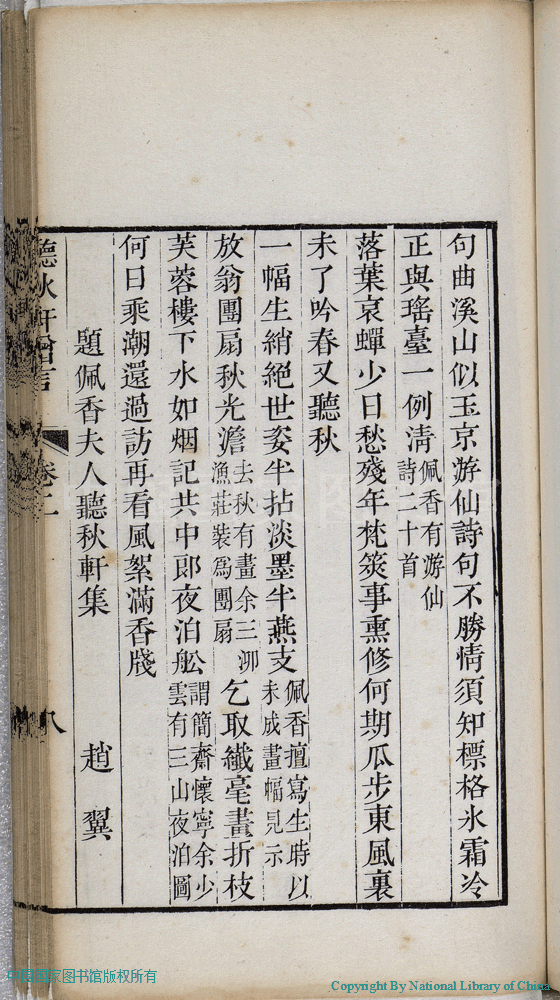 句曲溪山似玉京游仙詩句不勝情須知標格氷霜冷
正與瑤臺一例清佩香有游仙詩二十首
落葉哀蟬少日愁殘年梵筴事熏修何期瓜步東風裏
未了吟春又聽秋
一幅生綃絕世姿半拈淡墨半燕支佩香擅寫生時以未成畫幅見示
放翁團扇秋光澹去秋有畫余三泖漁莊裝爲團扇乞取纖毫畫折枝
芙蓉樓下水如烟記共中郎夜泊舩謂簡齋懷寧余少雲有三山夜泊圖
何日乘潮還過訪再看風絮滿香牋
題佩香夫人聽秋軒集
趙翼
聽秋軒贈言 卷二 八
中国国家图书馆版权所有
Copyright By National Library of China